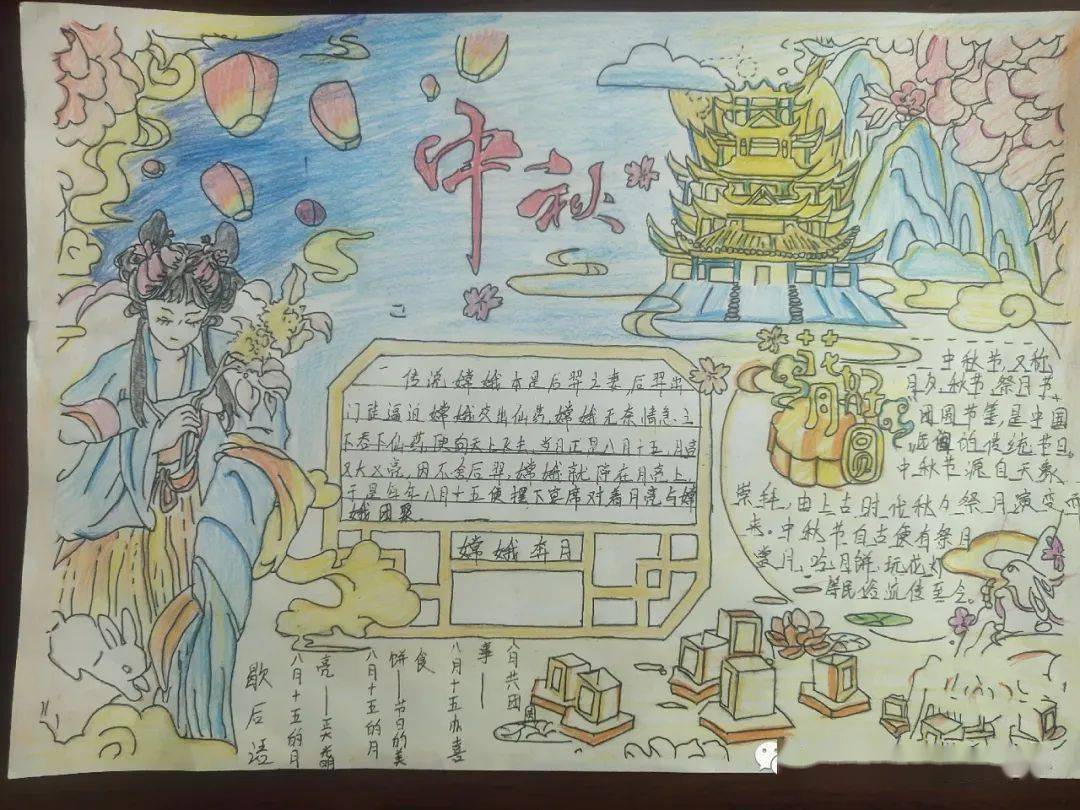 中秋
传说嫦娥本是后羿之妻,后羿出
门徒逼迫嫦娥交出仙药,嫦娥无奈情急之
下吞下仙药,便向天上飞去。当月正是八月十五,月亮
又大又亮,因不舍后羿,嫦娥就停在月亮上,
于是每年八月十五便摆下宴席对着月亮与嫦
娥团聚
嫦娥奔月
花好
月圆
中秋节,又称
月夕,秋节,祭月节,
团圆节等,是中国
的传统节日。
中秋节源自天象
崇拜,由上古时代秋夕祭月演变而
来。中秋节自古便有祭月
赏月,吃月饼,玩花灯
等民俗流传至今。
歇后语
八月十五的月
亮——正大
八月十五的月
饼——节日的美
食
八月十五办喜
事——
月共团
圆